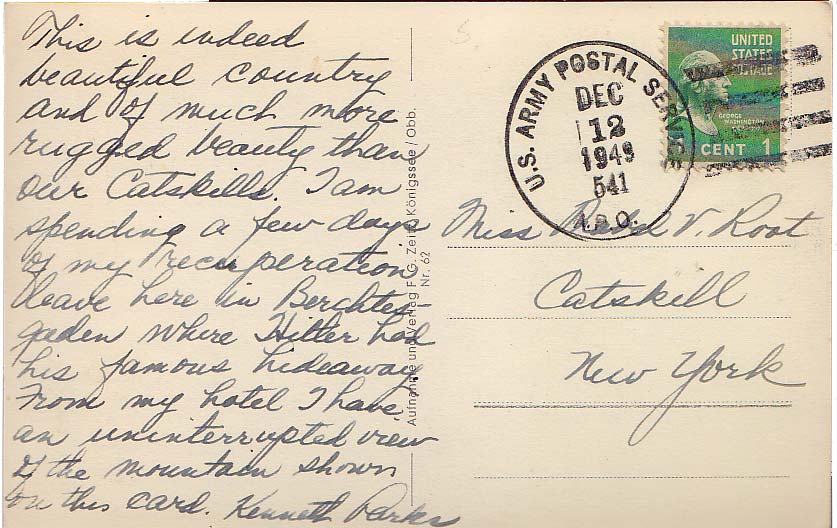 This is indeed
beautiful country
and of much more
rugged beauty than
our Catskills. I am
spending a few days
of my recuperation
leave here in Berchtes-
gaden where Hitler had
his famous hideaway
From my hotel I have
an uninterrupted view
of the mountain shown
on this card. Kenneth Parks
Aufnahme und Verlag F. G. Zeitz, Königssee / Obb.
Nr. 62
U.S. ARMY POSTAL SERVICE
DEC
12
1949
541
A.P.O.
UNITED
STATES
POSTAGE
GEORGE
WASHINGTON
CENT 1
Miss V. Root
Catskill
New York